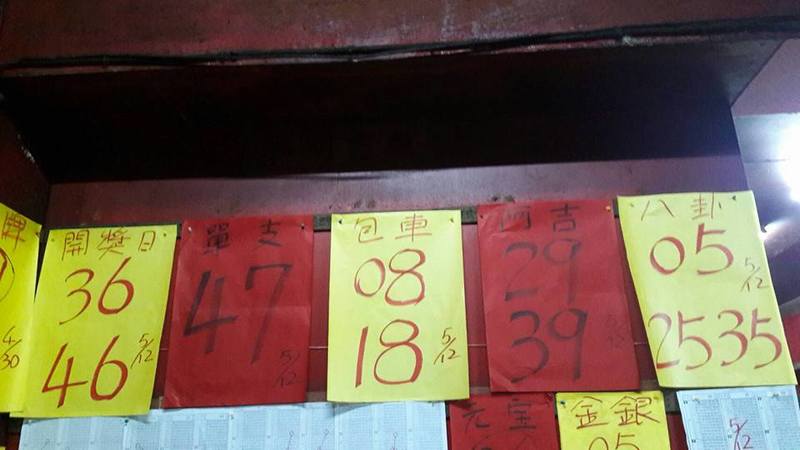 牌
4/30
開獎日
36
46
5/12
單支
47
5/12
包車
08
18
5/12
吉
29
39
5/12
八卦
05
5/12
2535
元宝
金銀
05
5/12